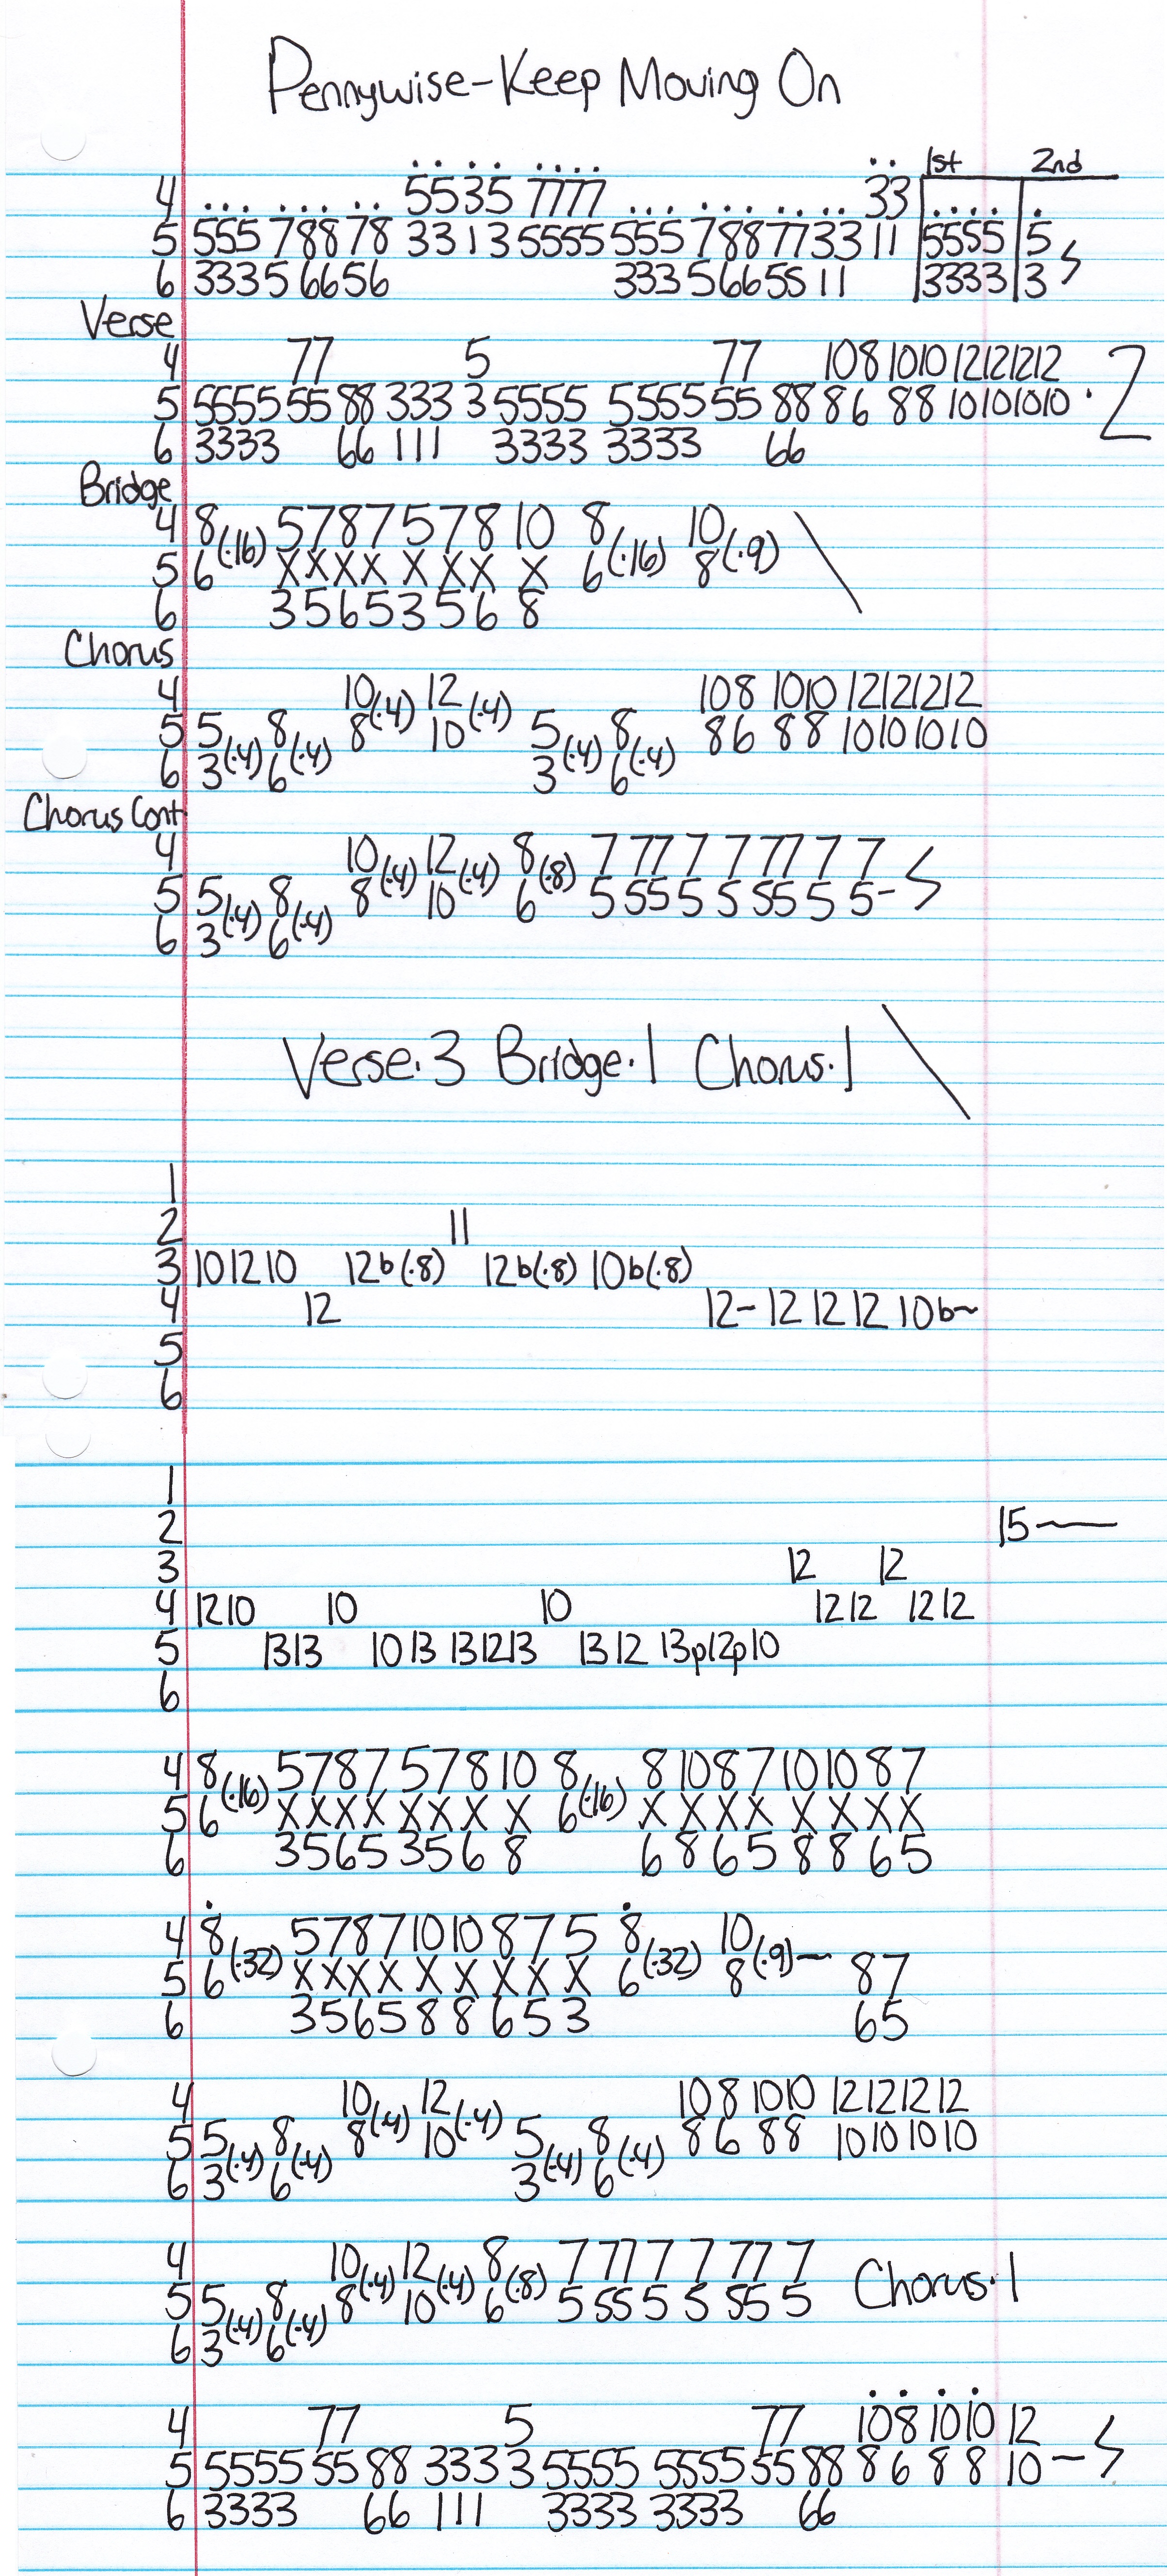 Pennywise-Keep Moving On
1st 2nd
4 5535 7777 33
5 555 7887 8 3313 5555 555 7887733 11 5555 5
6 3335 6656 33356655 11 3333 3
Verse
4 77 5 77 108 1010 12121212
5 5555 55 88 333 3 5555 5555 55 88 86 88 10101010 · 2
6 3333 66 111 3333 3333 66
Bridge
4 8 5787 578 10 8 10
5 6 (·16) XXXX X XX X 6 (·16) 8 (·9)
6 3565356 8
Chorus
4 10 (·4) 12 (·4) 108 1010 12121212
5 5 (·4) 8 (·4) 8 10 5 (·4) 8 (·4) 86 88 10101010
6 3 6 3 6
Chorus Cont
4 10 (·4) 12 (·4) 8 (·8) 7 77 7 7 77 7 7
5 5 (·4) 8 (·4) 8 10 6 5 55 5 5 55 5 5-
6 3 6
Verse·3 Bridge·1 Chorus·1
1
2 11
3 10 12 10 12b(·8) 12b(·8) 10b(·8)
4 12 12- 12 12 12 10b~
5
6
1
2 15
3 12 12
4 12 10 10 10 12 12 12 12
5 13 13 10 13 13 12 13 13 12 13p12p10
6
4 8 (·16) 5787 578 10 8 (·16) 8 10 8 7 10 10 8 7
5 6 XXXX XXX X 6 XXXX XXXX
6 3565 356 8 6 8 6 5 8 8 6 5
4 8 (·32) 5787 10 10 8 7 5 8 (·32) 10 (·9)-
5 6 XXXX X X X X X 6 8 87
6 3565 8 8 6 5 3 65
4 10 (·4) 12 (·4) 10 8 1010 12121212
5 5 (·4) 8 (·4) 8 10 5 (·4) 8 (·4) 8 6 88 10101010
6 3 6 3 6
4 10 (·4) 12 (·4) 8 (·8) 7 77 7 7 77 7 Chorus·1
5 5 (·4) 8 (·4) 8 10 6 5 55 5 5 55 5
6 3 6
4 77 5 77 108 1010 12
5 5555 55 88 333 3 5555 5555 55 88 8 6 8 8 10-
6 3333 66 111 3333 3333 66